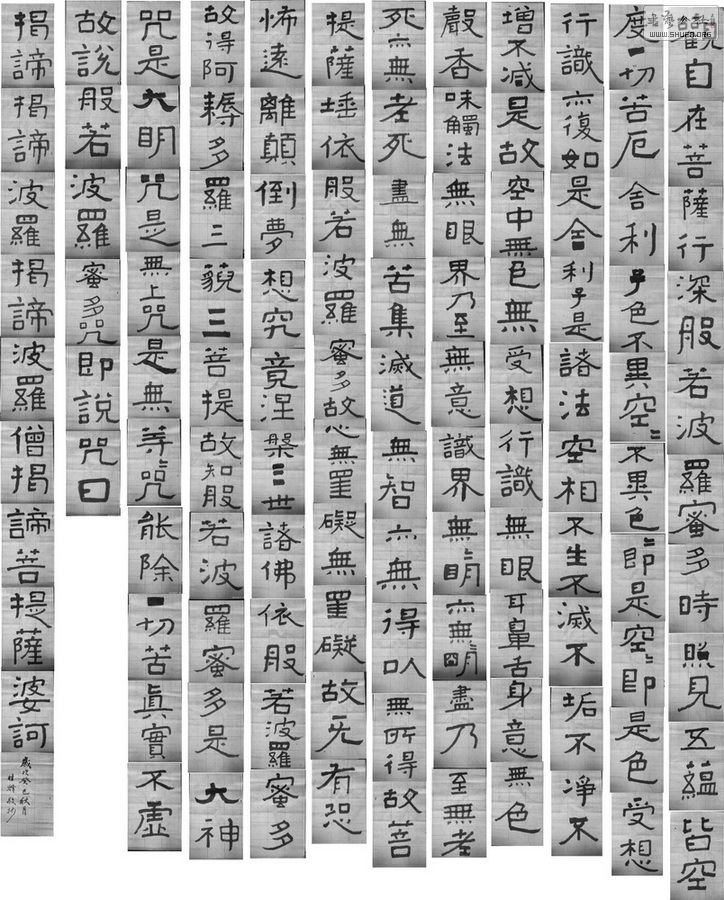 觀自在菩薩行深般若波羅蜜多時照見五蘊皆空
度一切苦厄舍利子色不異空〻不異色〻即是空〻即是色受想
行識亦復如是舍利子是諸法空相不生不滅不垢不淨不
增不減是故空中無色無受想行識無眼耳鼻舌身意無色
聲香味觸法無眼界乃至無意識界無明亦無明盡乃至無老
死亦無老死盡無苦集滅道無智亦無得以無所得故菩
提薩埵依般若波羅蜜多故心無罣礙無罣礙故无有恐
怖遠離顛倒夢想究竟涅槃三世諸佛依般若波羅蜜多
故得阿耨多羅三藐三菩提故知般若波羅蜜多是大神
咒是大明咒是無上咒是無等〻咒能除一切苦真實不虛
故說般若波羅蜜多咒即說咒曰
揭諦揭諦波羅揭諦波羅僧揭諦菩提薩婆訶
歲次癸巳秋月
WWW.SHUFA.ORG